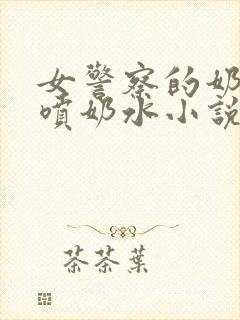 女警察的奶
噴奶水小説
茶茶葉